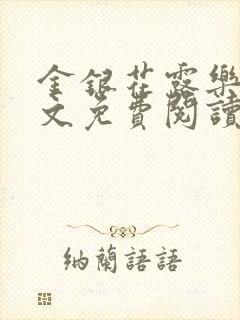 金銀花露樂
文免費閱讀
納蘭語語